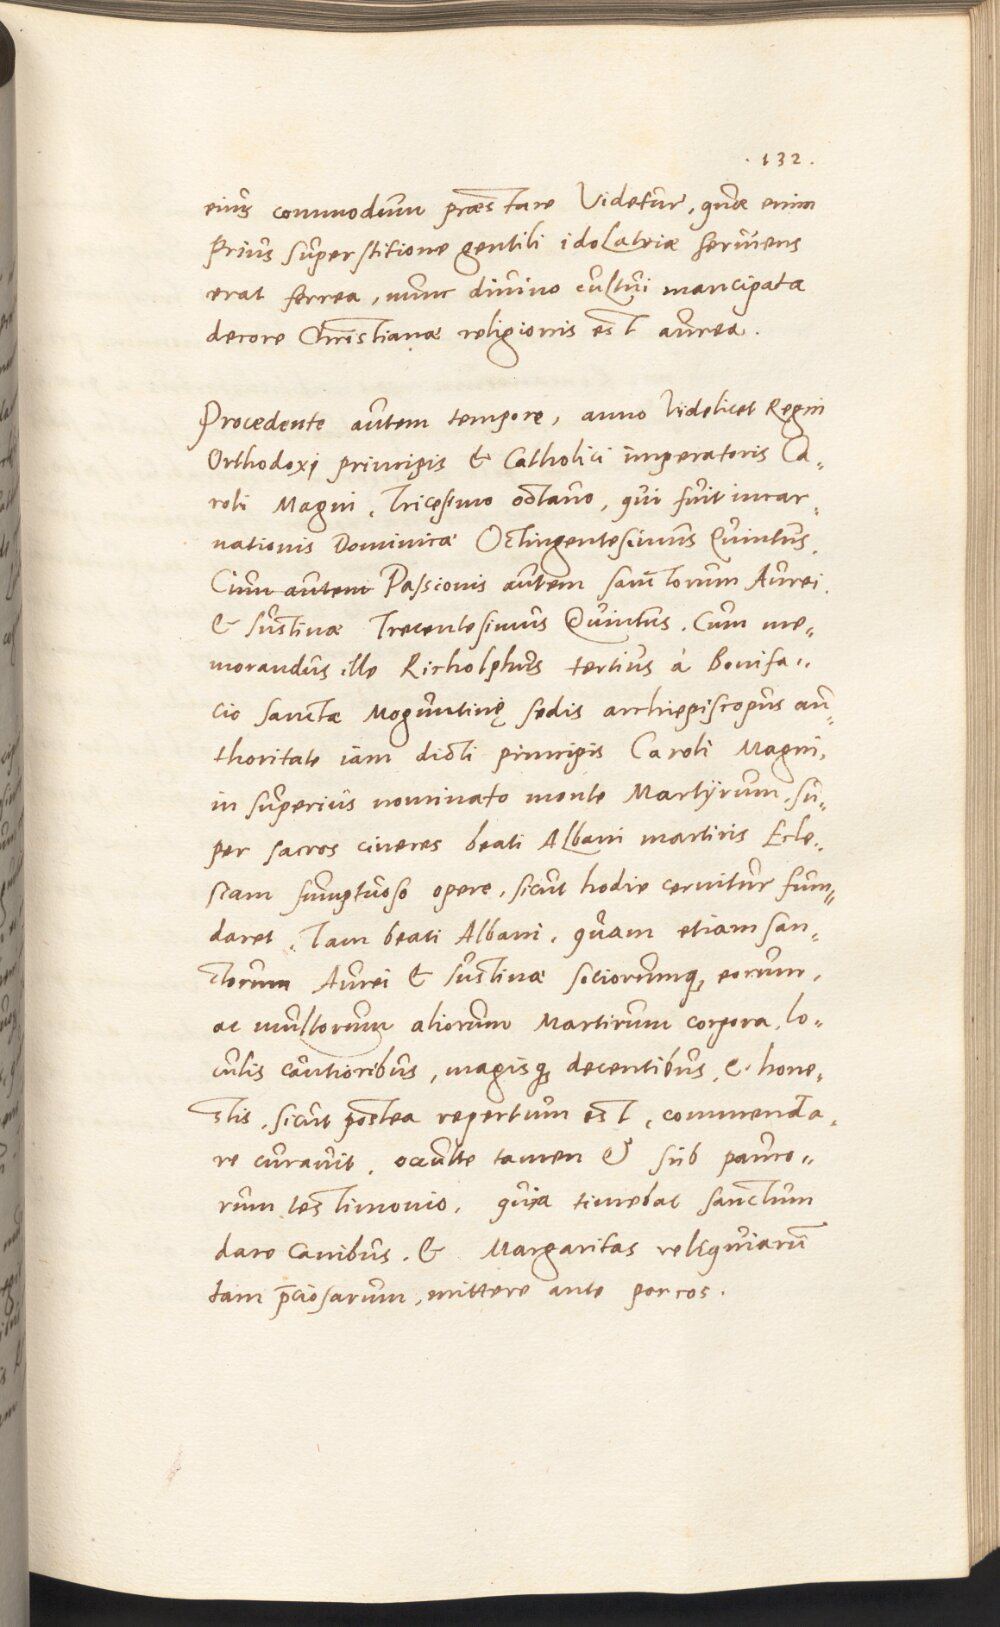 . 132 .
eius commodum præstare Videtur, quæ enim
Prius superstitione gentili idolatriæ serviens
erat ferrea, nunc divino cultui mancipata
decore Christianæ religionis est aurea.
Procedente autem tempore, anno Videlicet Regni
Orthodoxi principis & Catholici imperatoris Ca„
roli Magni, Tricesimo octavo, qui fuit incar„
nationis Dominicæ Octingentesimus Quintus,
Cum autem Passionis autem sanctorum Aurei
& Justinæ Trecentesimus Quintus. Cum me„
morandus ille Richolphus tertius à Bonifa„
cio sanctæ Moguntinę sedis archiepiscopus au„
thoritate iam dicti principis Caroli Magni,
in superius nominato monte Martÿrum, su„
per sacros cineres beati Albani martiris Ecle„
siam sumptuoso opere, sicut hodie cernitur fun„
daret, Tam beati Albani, quam etiam san„
ctorum Aurei & Justinæ sociorumq, eorum,
ac multorum aliorum Martirum corpora, lo„
culis cautioribus, magisq, decentibus, & hone„
stis, sicut postea repertum est, commenda„
re curavit, oculte tamen & sub pauco„
rum testimonio, quia timebat sanctum
dare Canibus. & Margaritas reliquiarū
tam p̄ciosarum, mittere ante porcos.